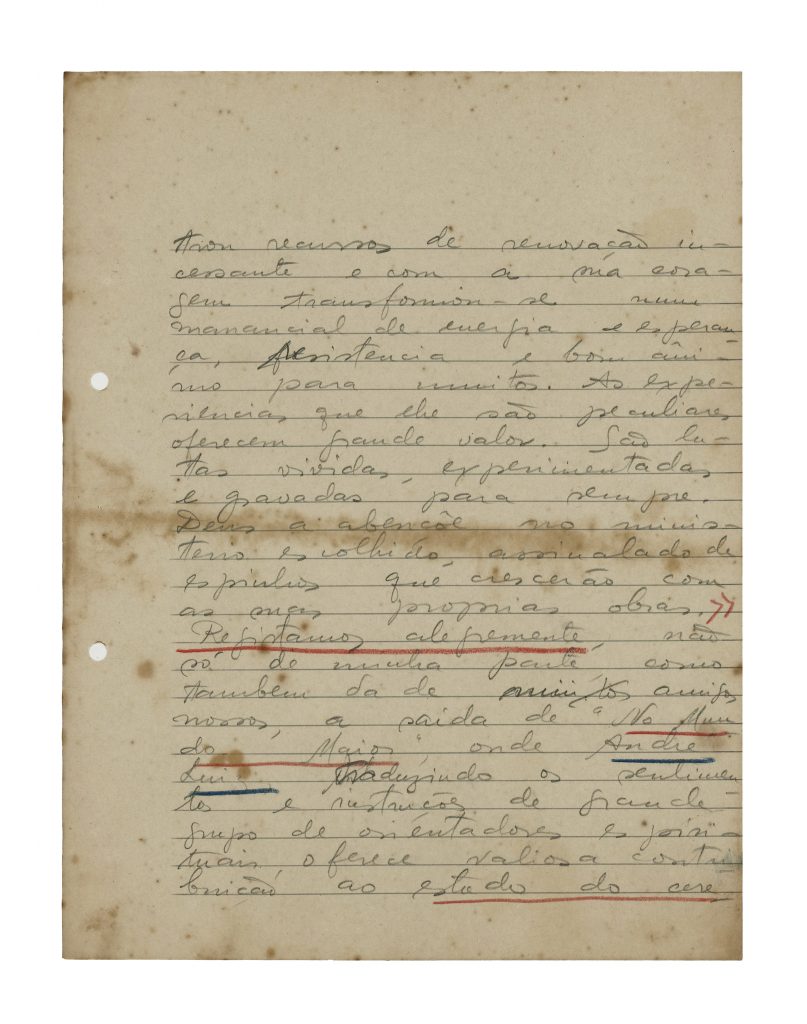 tron recursos de renovação in-
cessante e com a sua cora-
gem transformou-se num
manancial de energia e esperan
ça, resistencia e bom âni-
mo para muitos. As expe-
riencias que lhe são peculiares
oferecem grande valor. São lu-
tas vividas, experimentadas
e gravadas para sempre.
Deus a abençôe no minis-
terio escolhido, assinalado de
espinhos que crescerão com
as suas proprias obras.»
Registamos alegremente, não
só de minha parte como
tambem da de muitos amigos
nossos, a saida de "No Mun
do Maior", onde André
Luiz, traduzindo os sentimen
tos e instruções de grande
grupo de orientadores espiri-
tuais, oferece valiosa contri
buição ao estudo do cere